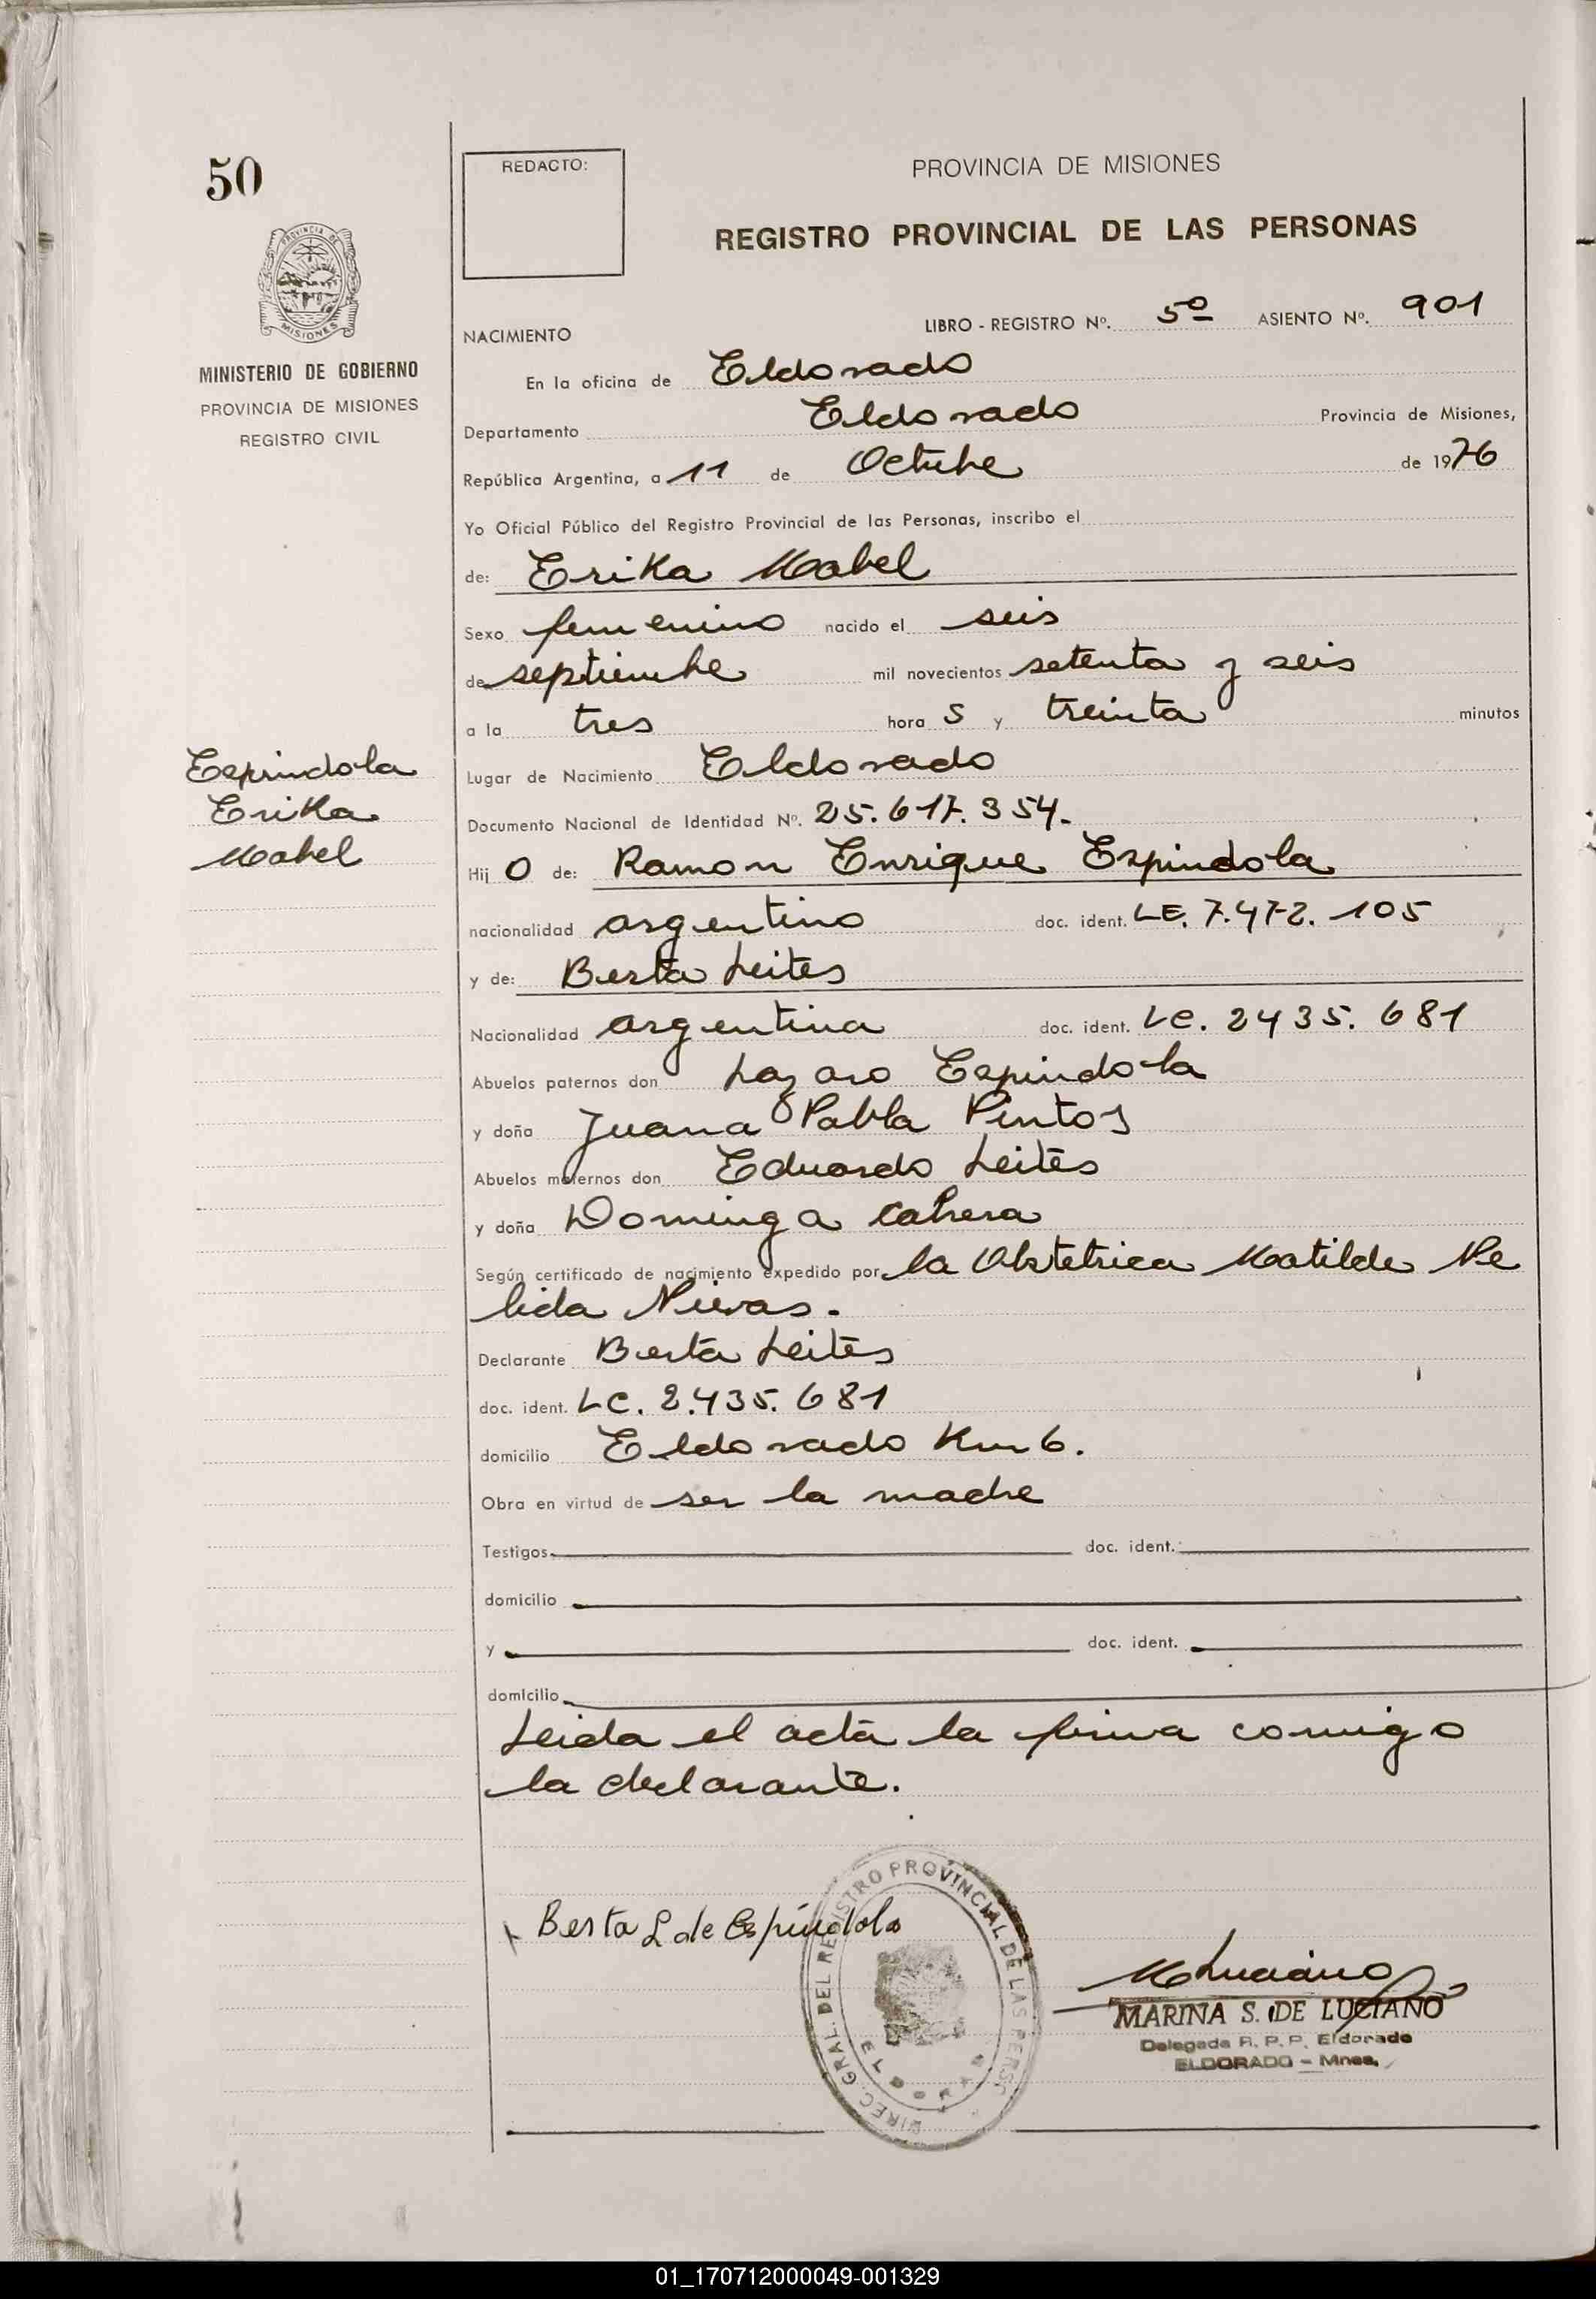 50
REDACTO:
PROVINCIA DE MISIONES
REGISTRO PROVINCIAL DE LAS PERSONAS
PROVINCIA DE
MISIONES
MINISTERIO DE GOBIERNO
PROVINCIA DE MISIONES
REGISTRO CIVIL
NACIMIENTO LIBRO - REGISTRO Nº. 5º ASIENTO Nº. 901
En la oficina de Eldorado
Departamento Eldorado Provincia de Misiones,
República Argentina, a 11 de Octubre de 1976
Yo Oficial Público del Registro Provincial de las Personas, inscribo el
de: Erika Mabel
Sexo femenino nacido el seis
de septiembre mil novecientos setenta y seis
a la tres hora s y treinta minutos
Lugar de Nacimiento Eldorado
Espindola
Erika
Mabel
Documento Nacional de Identidad Nº. 25.617.354.
Hij o de: Ramon Enrique Espindola
nacionalidad argentino doc. ident. LE. 7.472.105
y de: Berta Leites
Nacionalidad argentina doc. ident. LC. 2435.681
Abuelos paternos don Lazaro Espindola
y doña Juana Pabla Pintos
Abuelos maternos don Eduardo Leites
y doña Dominga Cabrera
Según certificado de nacimiento expedido por la Obstetrica Matilde Ne
lida Nievas.
Declarante Berta Leites
doc. ident. LC. 2.435.681
domicilio Eldorado Km 6.
Obra en virtud de ser la madre
Testigos doc. ident.:
domicilio
y doc. ident.
domicilio
Leida el acta la firma comigo
la declarante.
Berta L de Espíndola
DIREC. GRAL. DEL REGISTRO PROVINCIAL DE LAS PERSO
ELDORADO
MLuciano
MARINA S. DE LUCIANO
Delegada R. P. P. Eldorado
ELDORADO - Mnes.
01_170712000049-001329